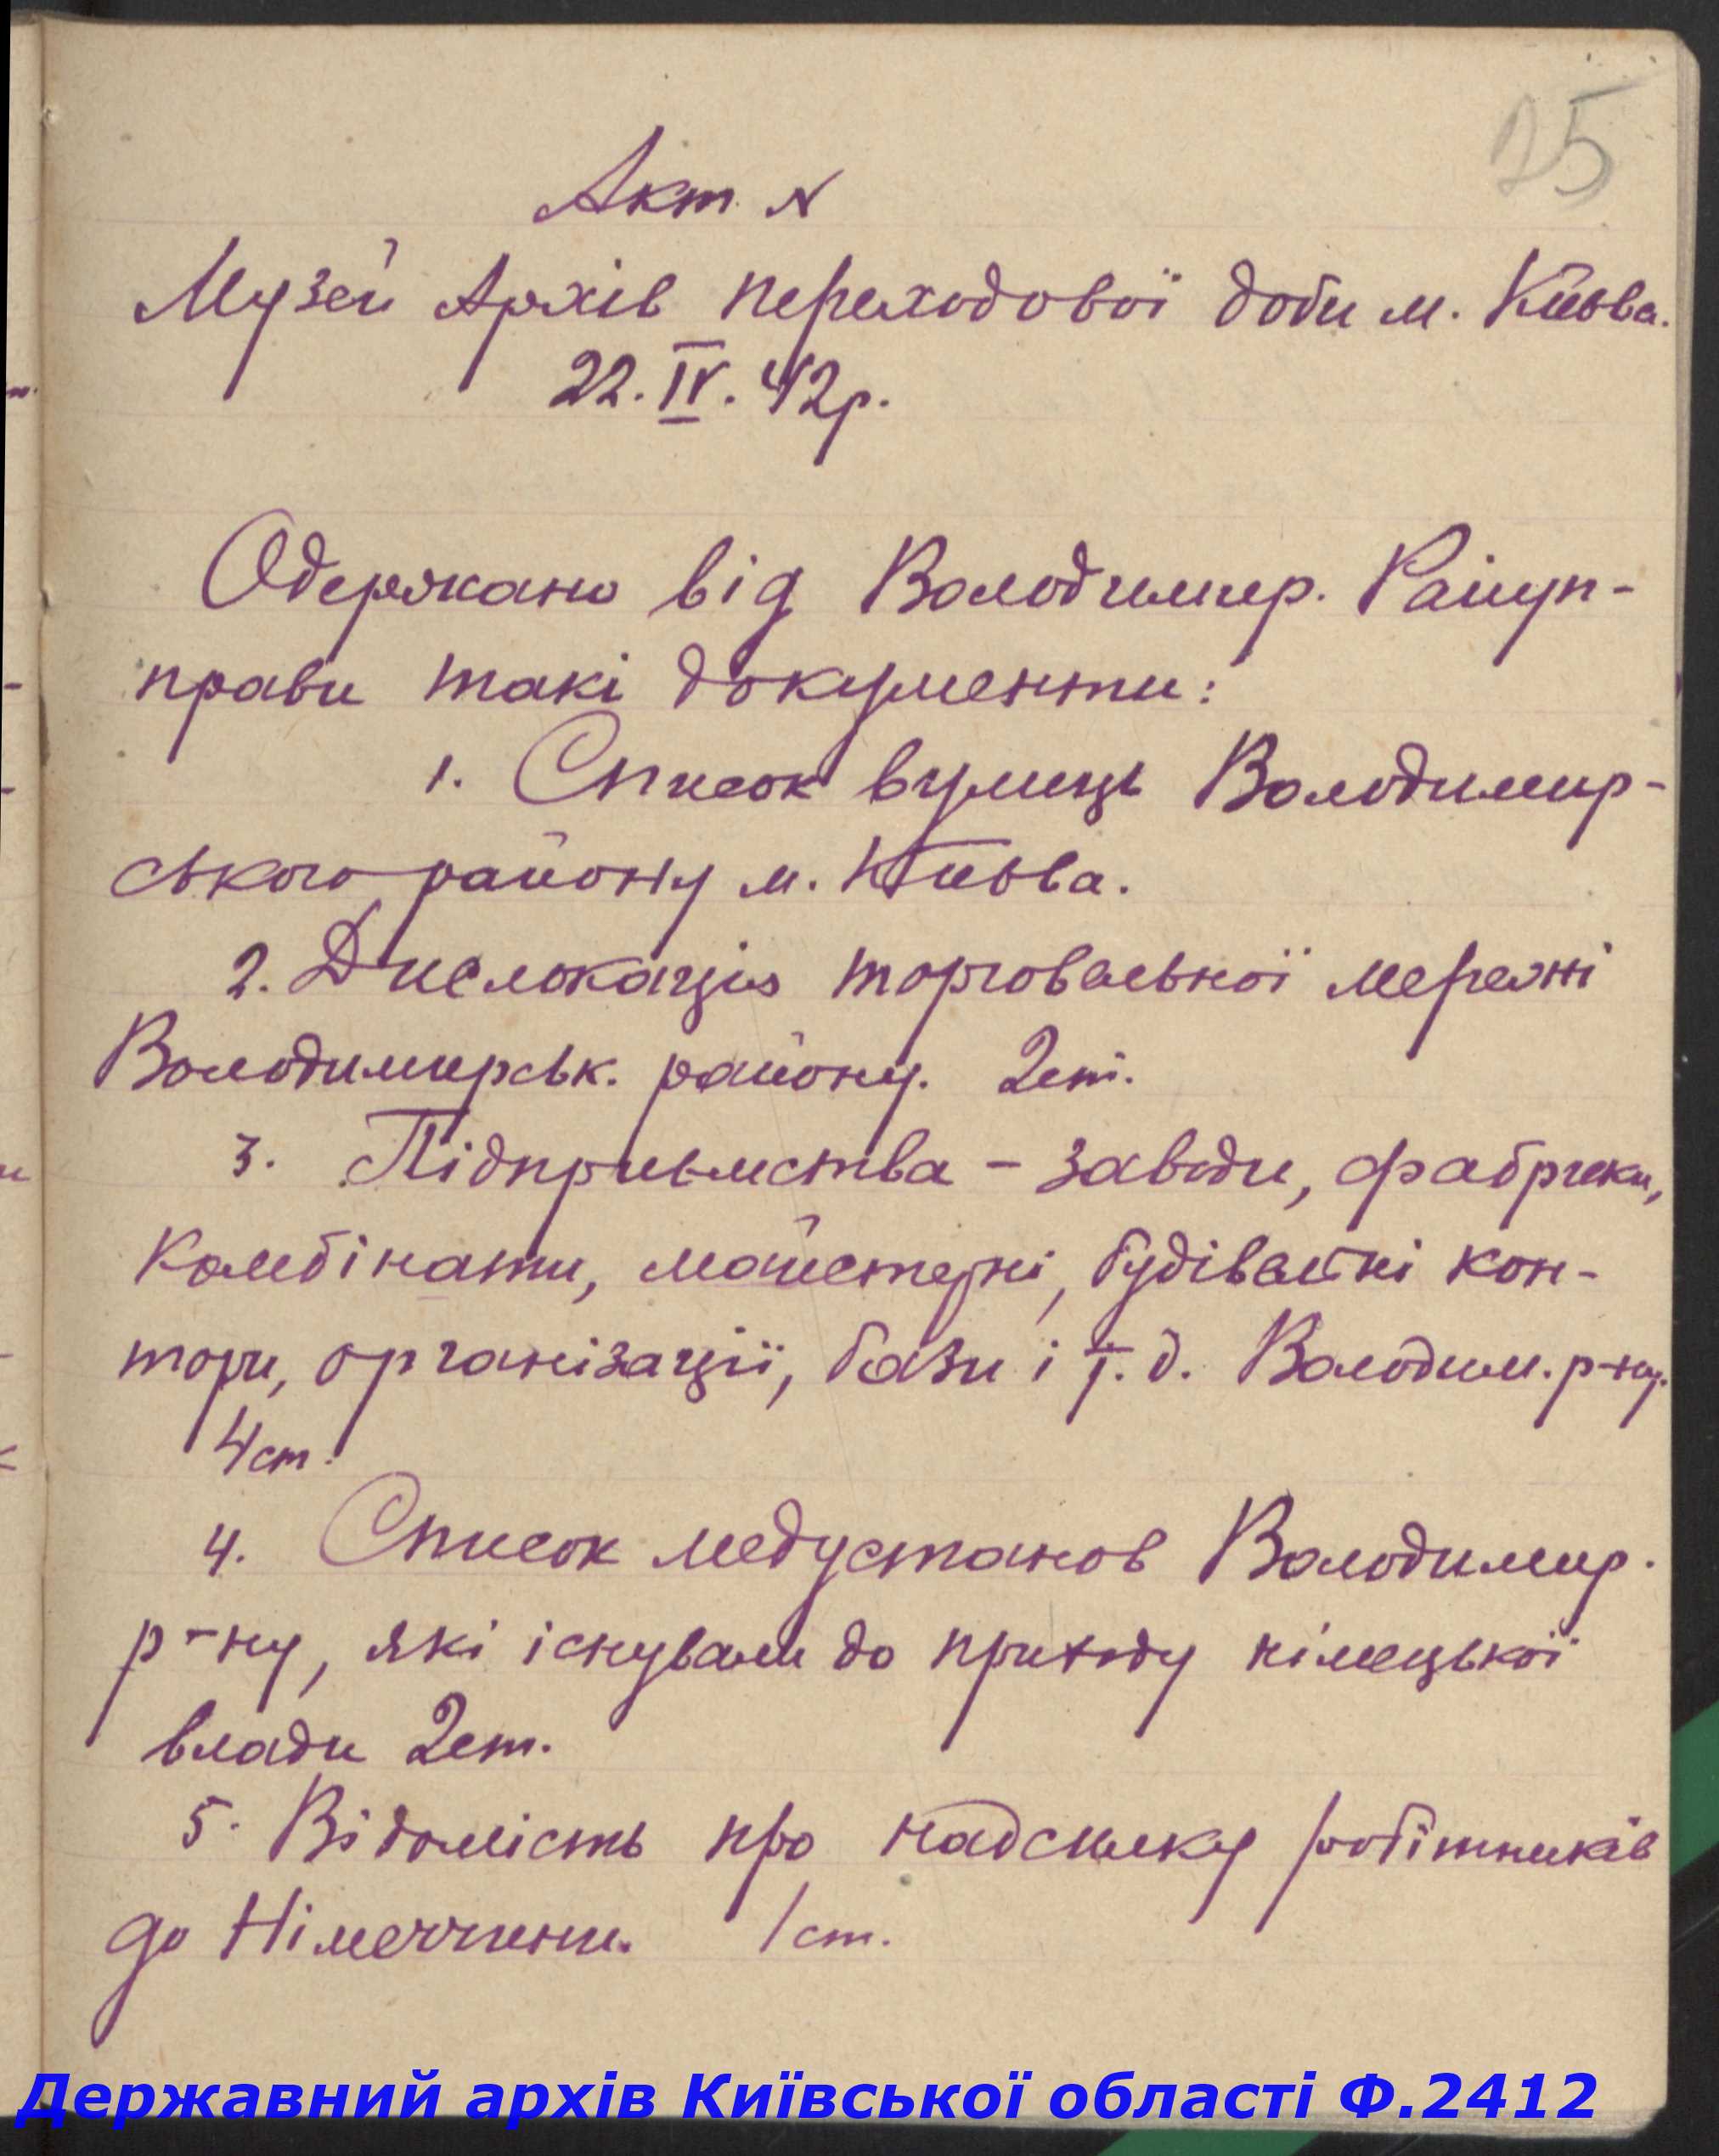 25
Акт N
Музей Архів переходової доби м. Києва.
22. IV. 42р.
Одержано від Володимир. Райуп-
прави такі документи:
1. Список вулиць Володимир-
ського району м. Києва.
2. Дислокація торговельної мережі
Володимирськ. району. 2 ст.
3. Підприємства - заводи, фабрики,
комбінати, майстерні, будівельні кон-
тори, організації, бази і т. д. Володим. р-ну.
4 ст.
4. Список медустанов Володимир.
р-ну, які існували до приходу німецької
влади 2 ст.
5. Відомість про надсилку робітників
до Німеччини. 1 ст.
Державний архів Київської області Ф.2412